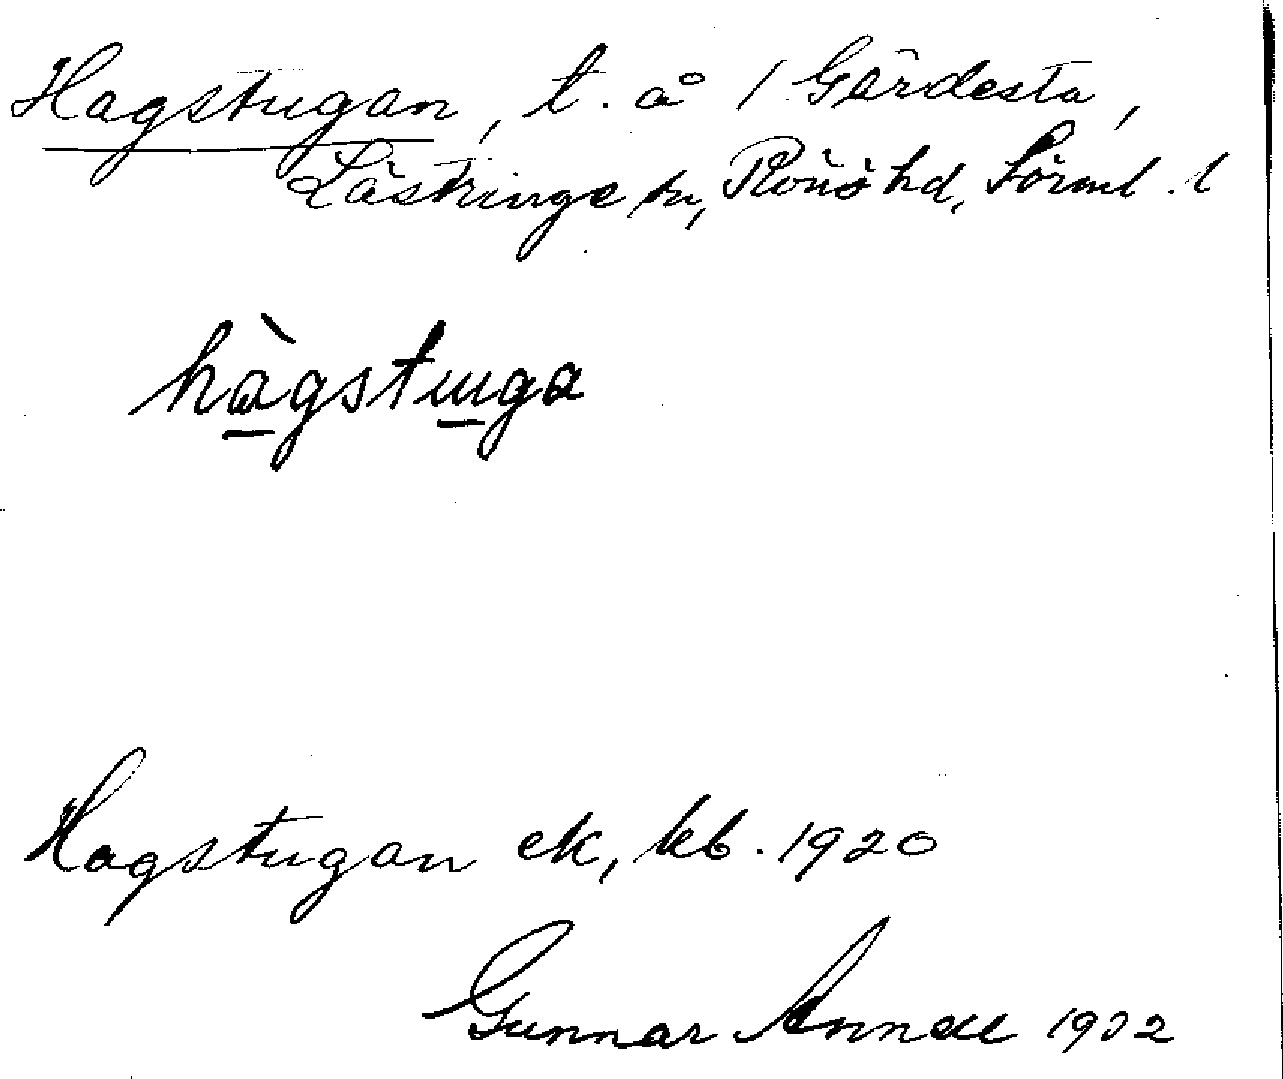 Hagstugan, t. å 1 Gärdesta,
Lästringe sn, Rönö hd, Sörml. l
hàgstuga
Hagstugan ek, kb. 1920
Gunnar Annell 1932